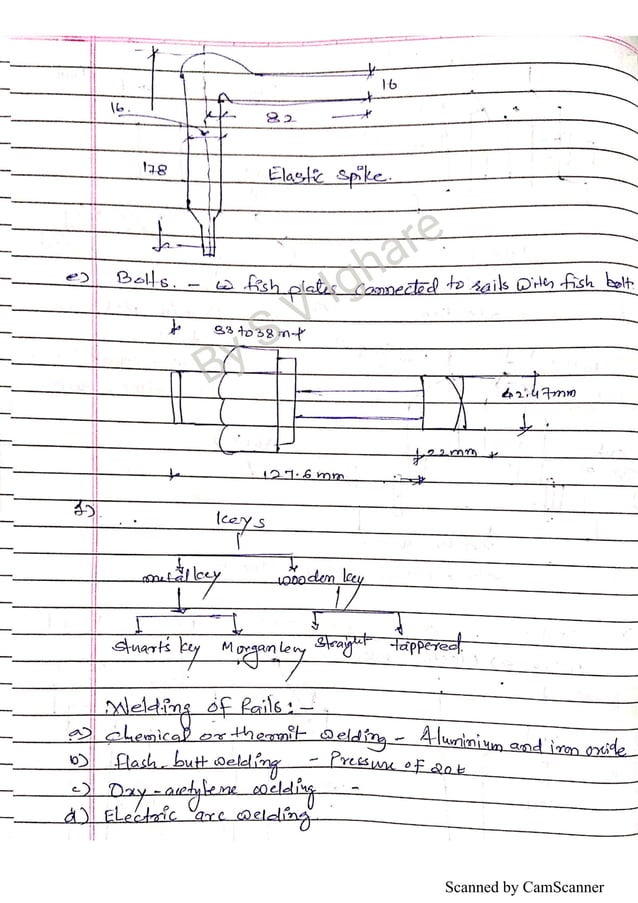 16
16.
82
178
Elastic spike.
e) Bolts. - ω fish plates connected to rails with fish bolt.
By S V Ighare
33 to 38 m
42.47mm
22mm
127.6 mm
f)
keys
metal key wooden key
Stuart's key Morgan key straight tappered.
Welding of Rails:-
a) chemical or thermit welding - Aluminium and iron oxide
b) flash butt welding - Pressure of 20t
c) Oxy-acetylene welding -
d) Electric arc welding
Scanned by CamScanner